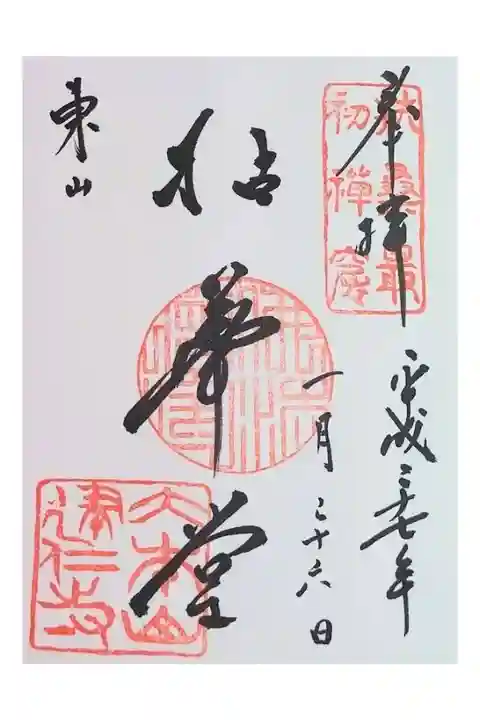 奉拝
扶桑最
初禅窟
平成二十七年
一月二十六日
拈華堂
東山
大本山
建仁寺